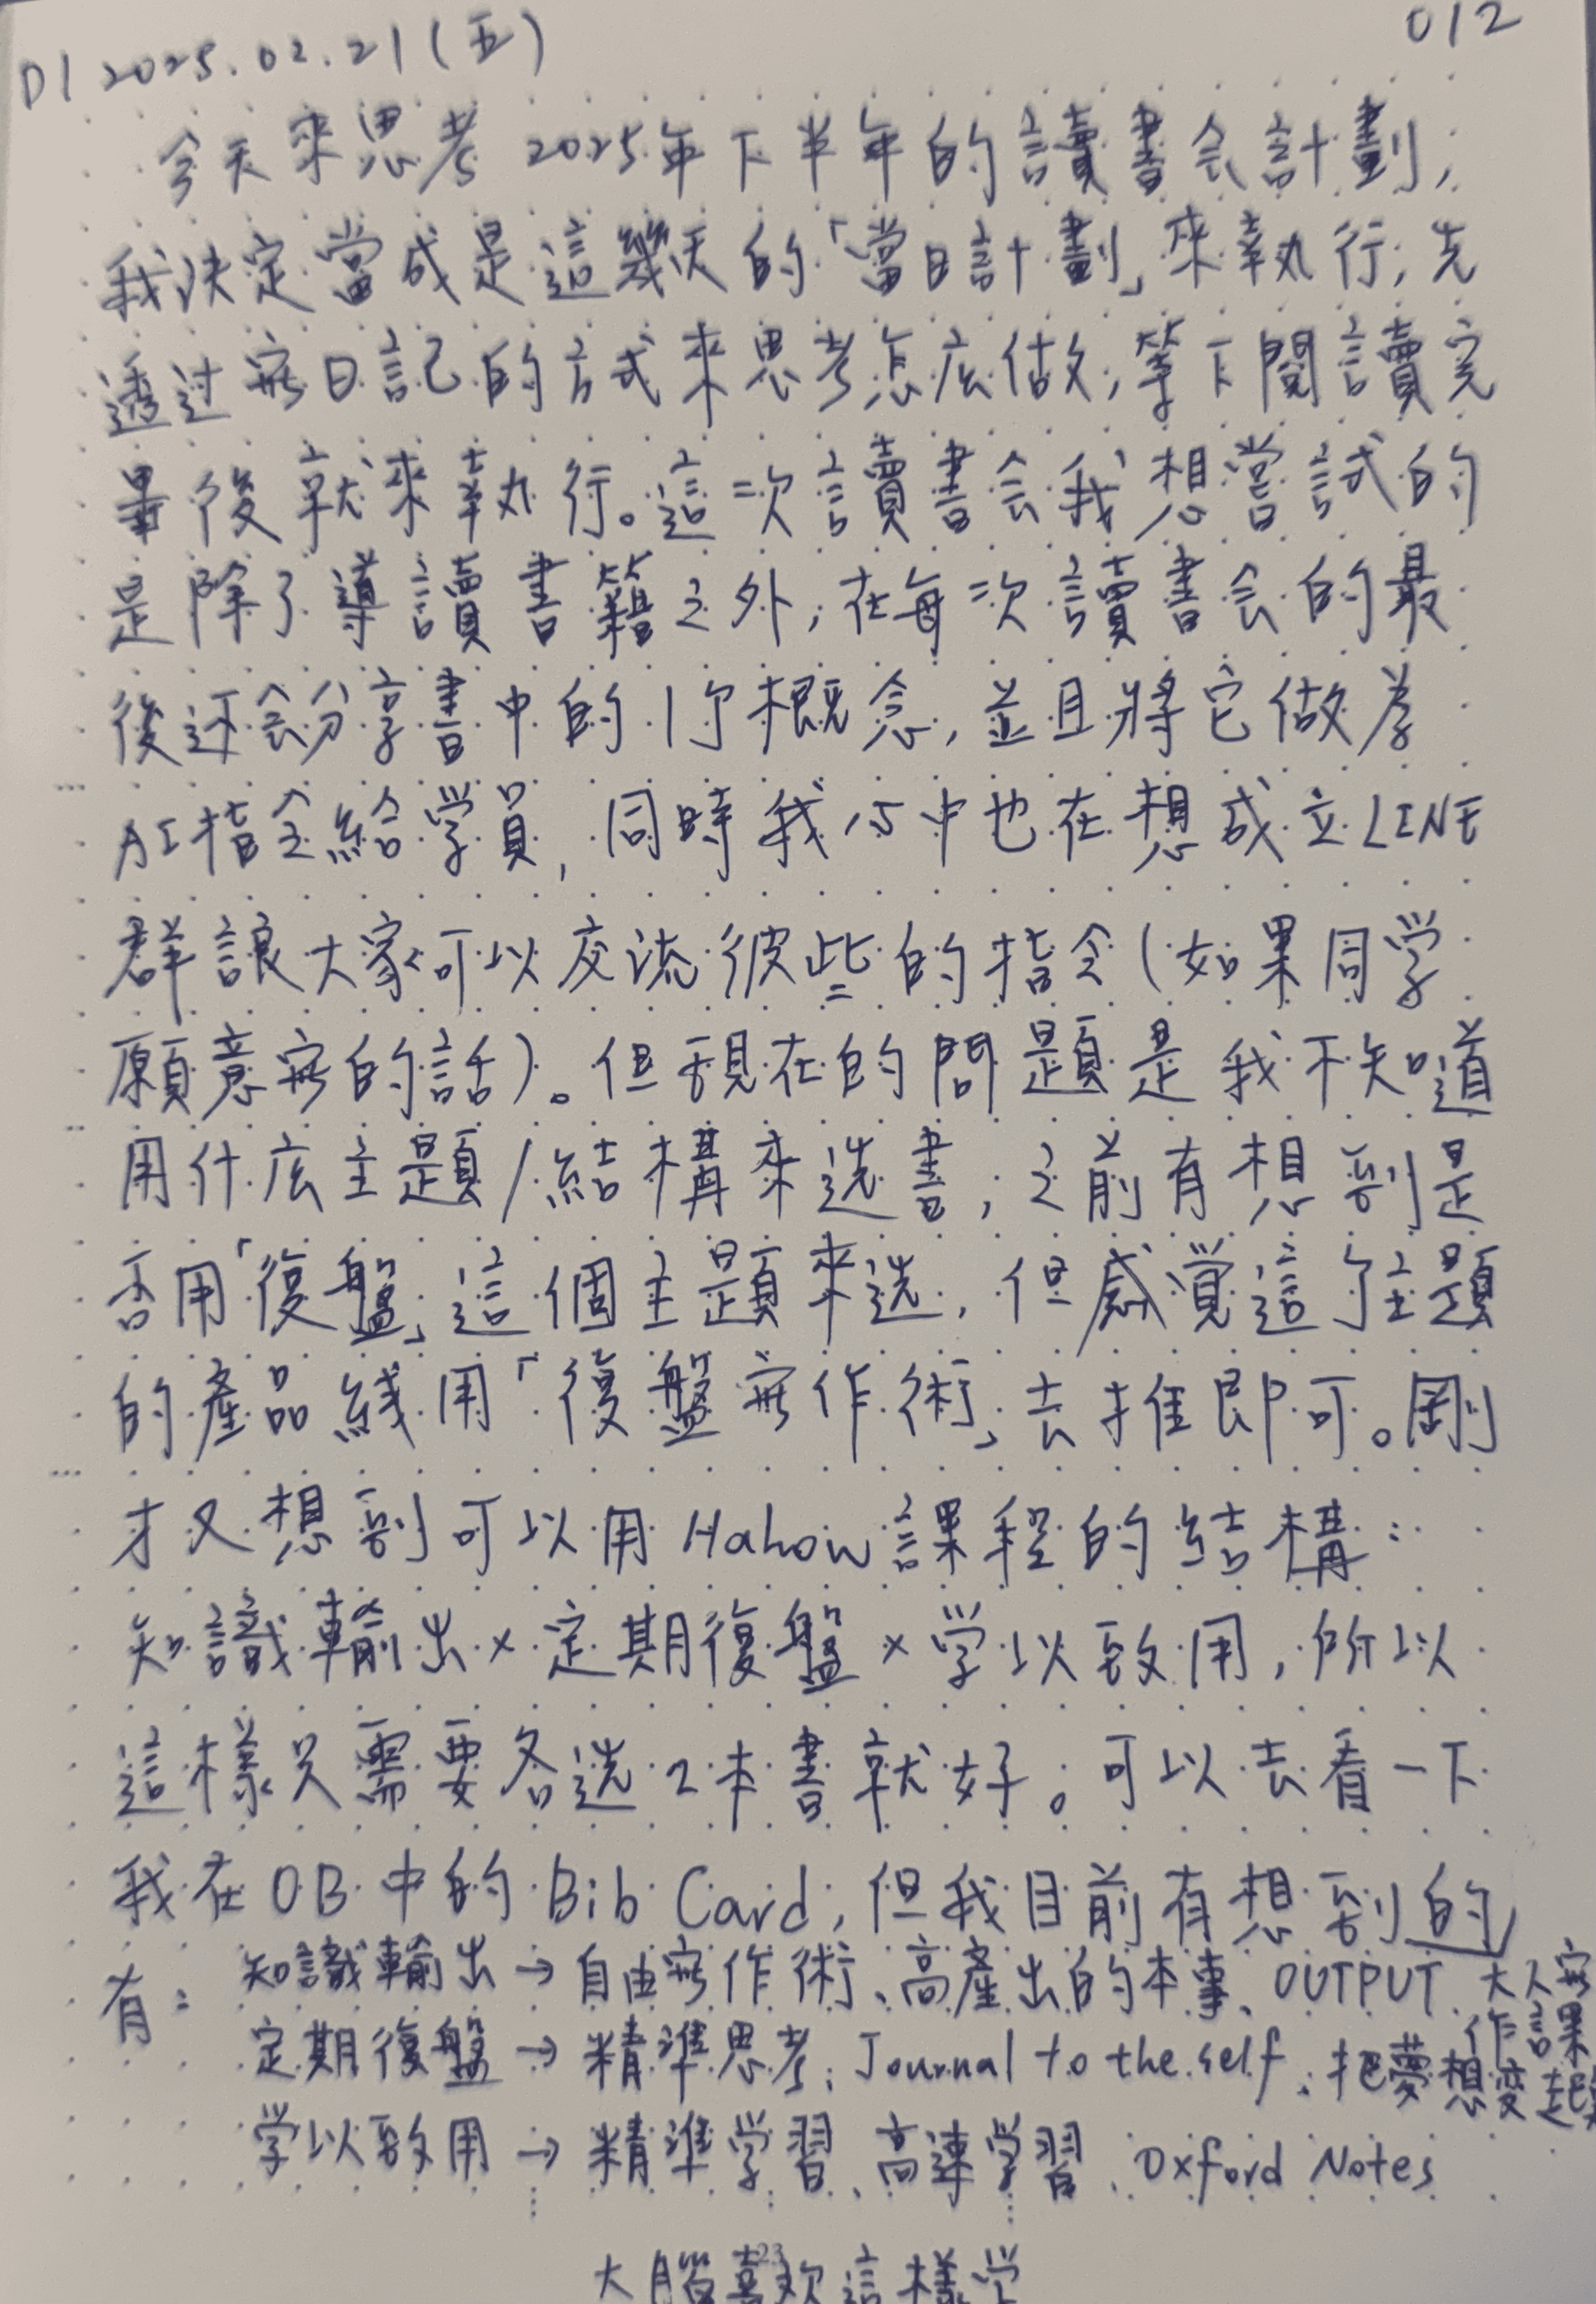 D1 2025.02.21(五)
012
今天來思考2025年下半年的讀書会計劃,
我決定當成是這幾天的「當日計劃」來執行,先
透过寫日記的方式來思考怎麼做,等下閱讀完
畢後就來執行。這次讀書会我想嘗試的
是除了導讀書籍之外,在每次讀書会的最
後还会分享書中的1个概念,並且將它做為
AI指令給学員,同時我心中也在想成立LINE
群讓大家可以交流彼此的指令(如果同学
願意寫的話)。但現在的問題是我不知道
用什麼主題/結構來选書,之前有想到是
否用「復盤」這個主題來选,但感覚這个主題
的產品綫用「復盤寫作術」去推即可。剛
才又想到可以用Hahow課程的結構:
知識輸出×定期復盤×学以致用,所以
這樣只需要各选2本書就好。可以去看一下
我在OB中的Bib Card,但我目前有想到的
有:知識輸出→自由寫作術、高產出的本事、OUTPUT、大人寫
作課
定期復盤→精準思考、Journal to the self、把夢想變起
学以致用→精準学習、高速学習、Oxford Notes
23
大腦喜欢這樣学